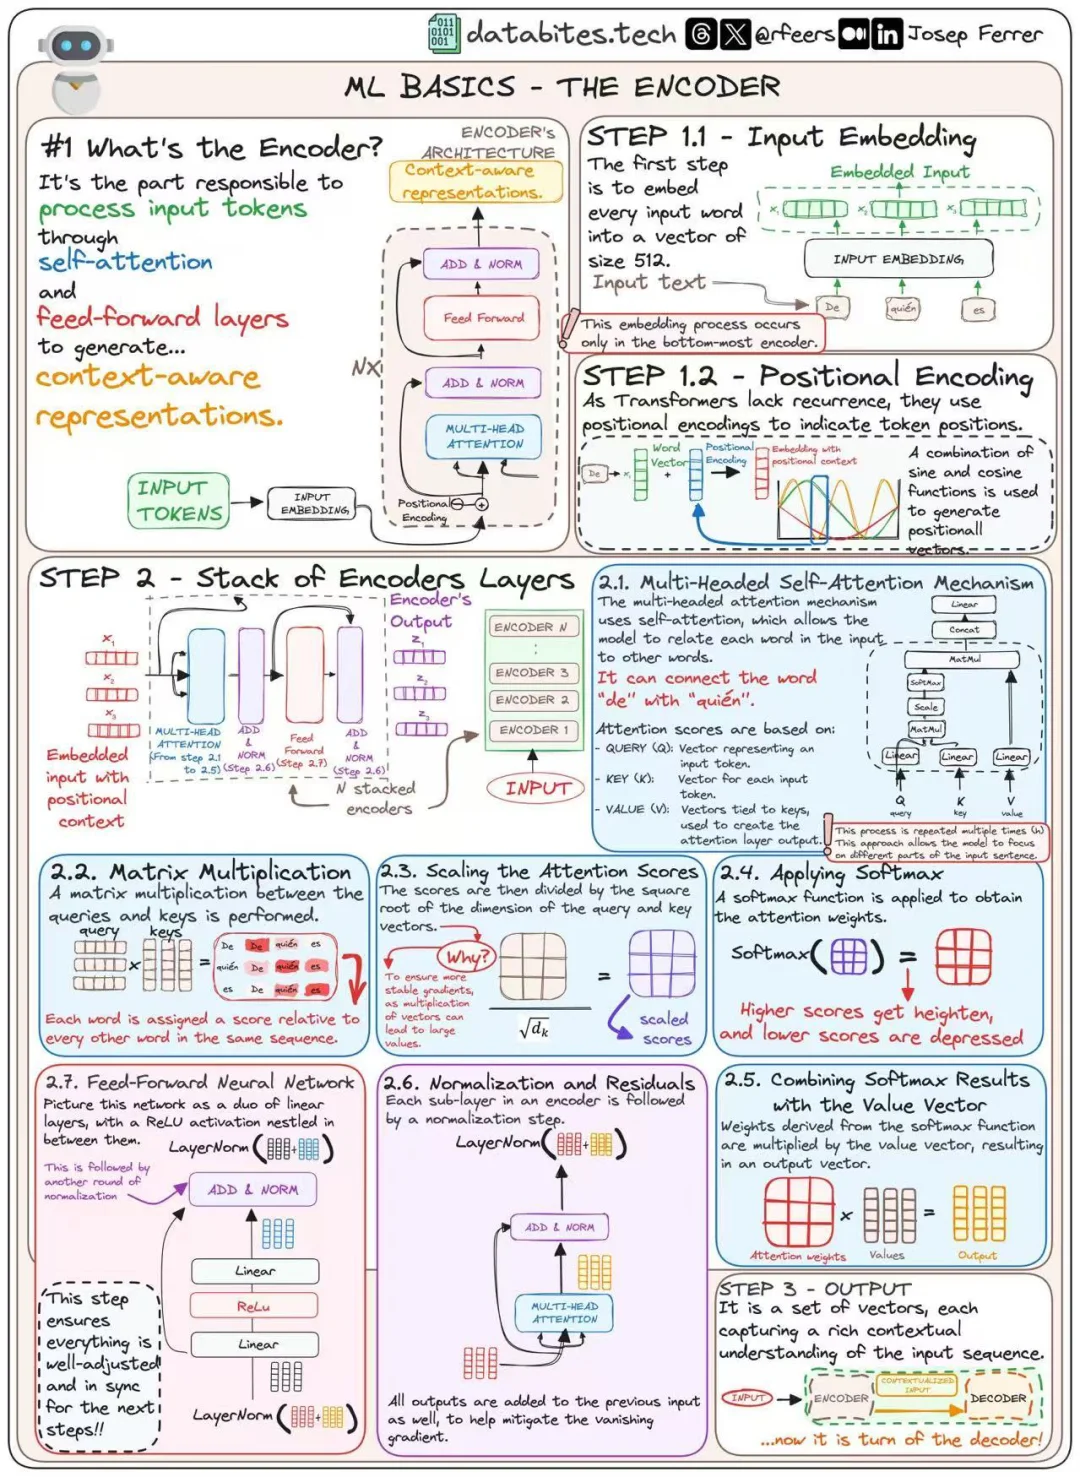 011
0101
001
databites.tech
@rfeers
Josep Ferrer
ML BASICS - THE ENCODER
#1 What's the Encoder?
It's the part responsible to
process input tokens
through
self-attention
and
feed-forward layers
to generate...
context-aware
representations.
ENCODER's
ARCHITECTURE
Context-aware
representations.
ADD & NORM
Feed Forward
Nx
ADD & NORM
MULTI-HEAD
ATTENTION
Positional
Encoding
INPUT
TOKENS
INPUT
EMBEDDING
STEP 1.1 - Input Embedding
The first step
is to embed
every input word
into a vector of
size 512.
Embedded Input
x₁
x₂
x₃
INPUT EMBEDDING
Input text
De
quién
es
This embedding process occurs
only in the bottom-most encoder.
STEP 1.2 - Positional Encoding
As Transformers lack recurrence, they use
positional encodings to indicate token positions.
De
x₁
Word
Vector
+
Positional
Encoding
Embedding with
positional context
A combination of
sine and cosine
functions is used
to generate
positionall
vectors.
STEP 2 - Stack of Encoders Layers
x₁
x₂
x₃
Embedded
input with
positional
context
MULTI-HEAD
ATTENTION
(From step 2.1
to 2.5)
ADD
&
NORM
(Step 2.6)
Feed
Forward
(Step 2.7)
ADD
&
NORM
(Step 2.6)
Encoder's
Output
z₁
z₂
z₃
N stacked
encoders
ENCODER N
:
ENCODER 3
ENCODER 2
ENCODER 1
INPUT
2.1. Multi-Headed Self-Attention Mechanism
The multi-headed attention mechanism
uses self-attention, which allows the
model to relate each word in the input
to other words.
It can connect the word
"de" with "quién".
Attention scores are based on:
- QUERY (Q): Vector representing an
input token.
- KEY (K): Vector for each input
token.
- VALUE (V): Vectors tied to keys,
used to create the
attention layer output.
Linear
Concat
MatMul
SoftMax
Scale
MatMul
Linear
Linear
Linear
Q
query
K
key
V
value
This process is repeated multiple times (h)
This approach allows the model to focus
on different parts of the input sentence.
2.2. Matrix Multiplication
A matrix multiplication between the
queries and keys is performed.
query
keys
x
=
De De quién es
quién De quién es
es De quién es
Each word is assigned a score relative to
every other word in the same sequence.
2.3. Scaling the Attention Scores
The scores are then divided by the square
root of the dimension of the query and key
vectors.
Why?
To ensure more
stable gradients,
as multiplication
of vectors can
lead to large
values.
√dk
=
scaled
scores
2.4. Applying Softmax
A softmax function is applied to obtain
the attention weights.
Softmax( ) =
Higher scores get heighten,
and lower scores are depressed
2.7. Feed-Forward Neural Network
Picture this network as a duo of linear
layers, with a ReLU activation nestled in
between them.
LayerNorm( + )
This is followed by
another round of
normalization
ADD & NORM
Linear
ReLu
Linear
LayerNorm( + )
This step
ensures
everything is
well-adjusted
and in sync
for the next
steps!!
2.6. Normalization and Residuals
Each sub-layer in an encoder is followed
by a normalization step.
LayerNorm( + )
ADD & NORM
MULTI-HEAD
ATTENTION
All outputs are added to the previous input
as well, to help mitigate the vanishing
gradient.
2.5. Combining Softmax Results
with the Value Vector
Weights derived from the softmax function
are multiplied by the value vector, resulting
in an output vector.
x
=
Attention weights
Values
Output
STEP 3 - OUTPUT
It is a set of vectors, each
capturing a rich contextual
understanding of the input sequence.
INPUT
ENCODER
CONTEXTUALIZED
INPUT
DECODER
...now it is turn of the decoder!